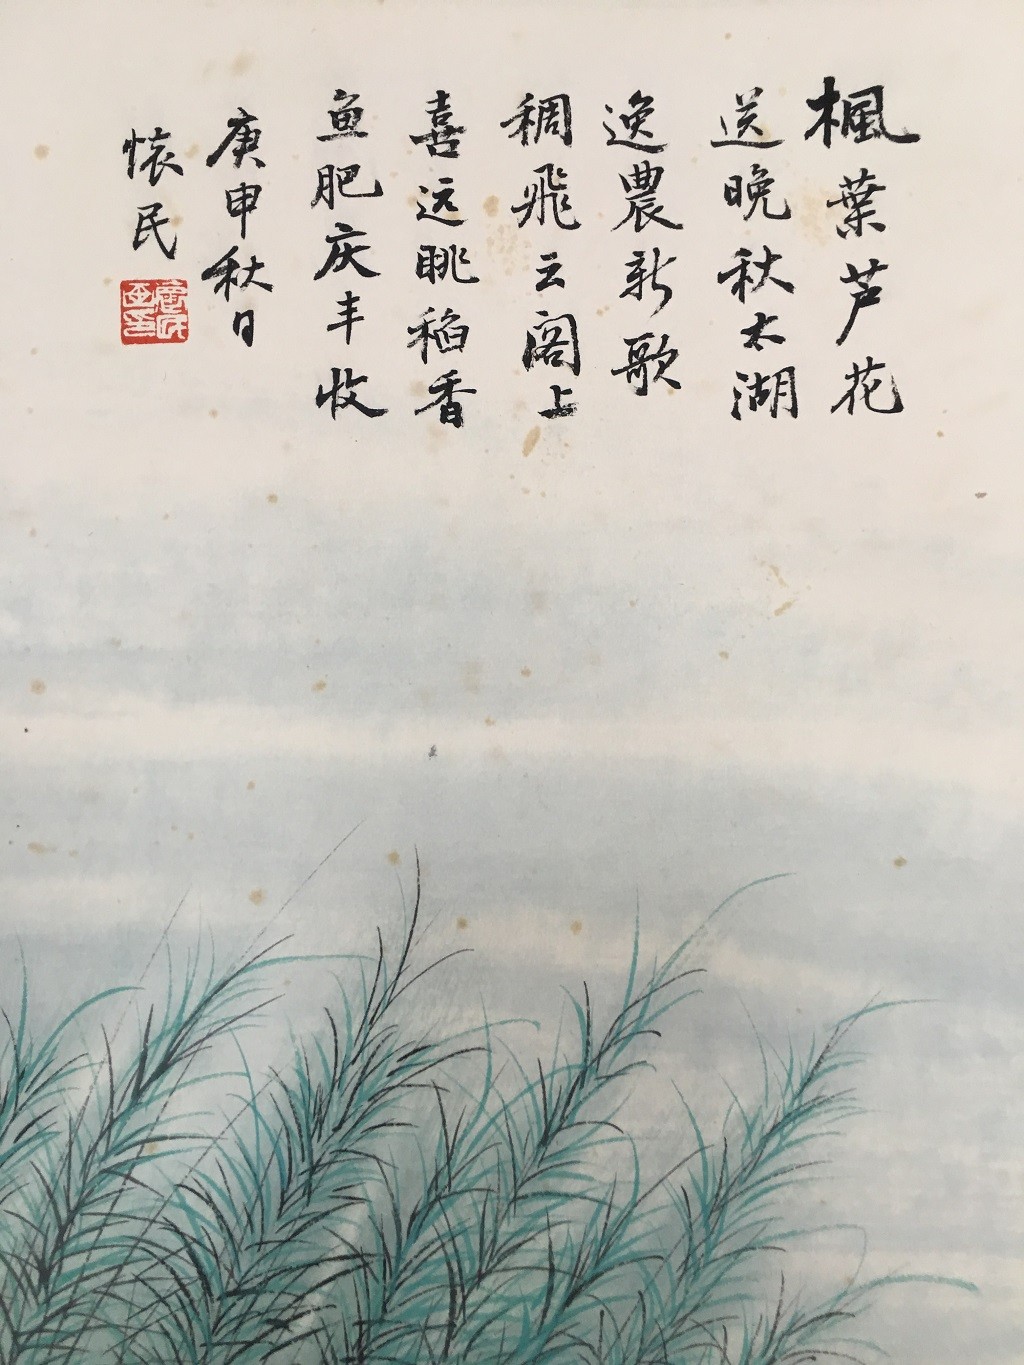 楓葉芦花
送晚秋太湖
逸農新歌
稠飛云阁上
喜远眺稻香
鱼肥庆丰收
庚申秋日
懷民